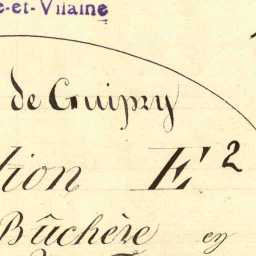 e-et-Vilaine
de Guipry
tion E²
Bûchère en